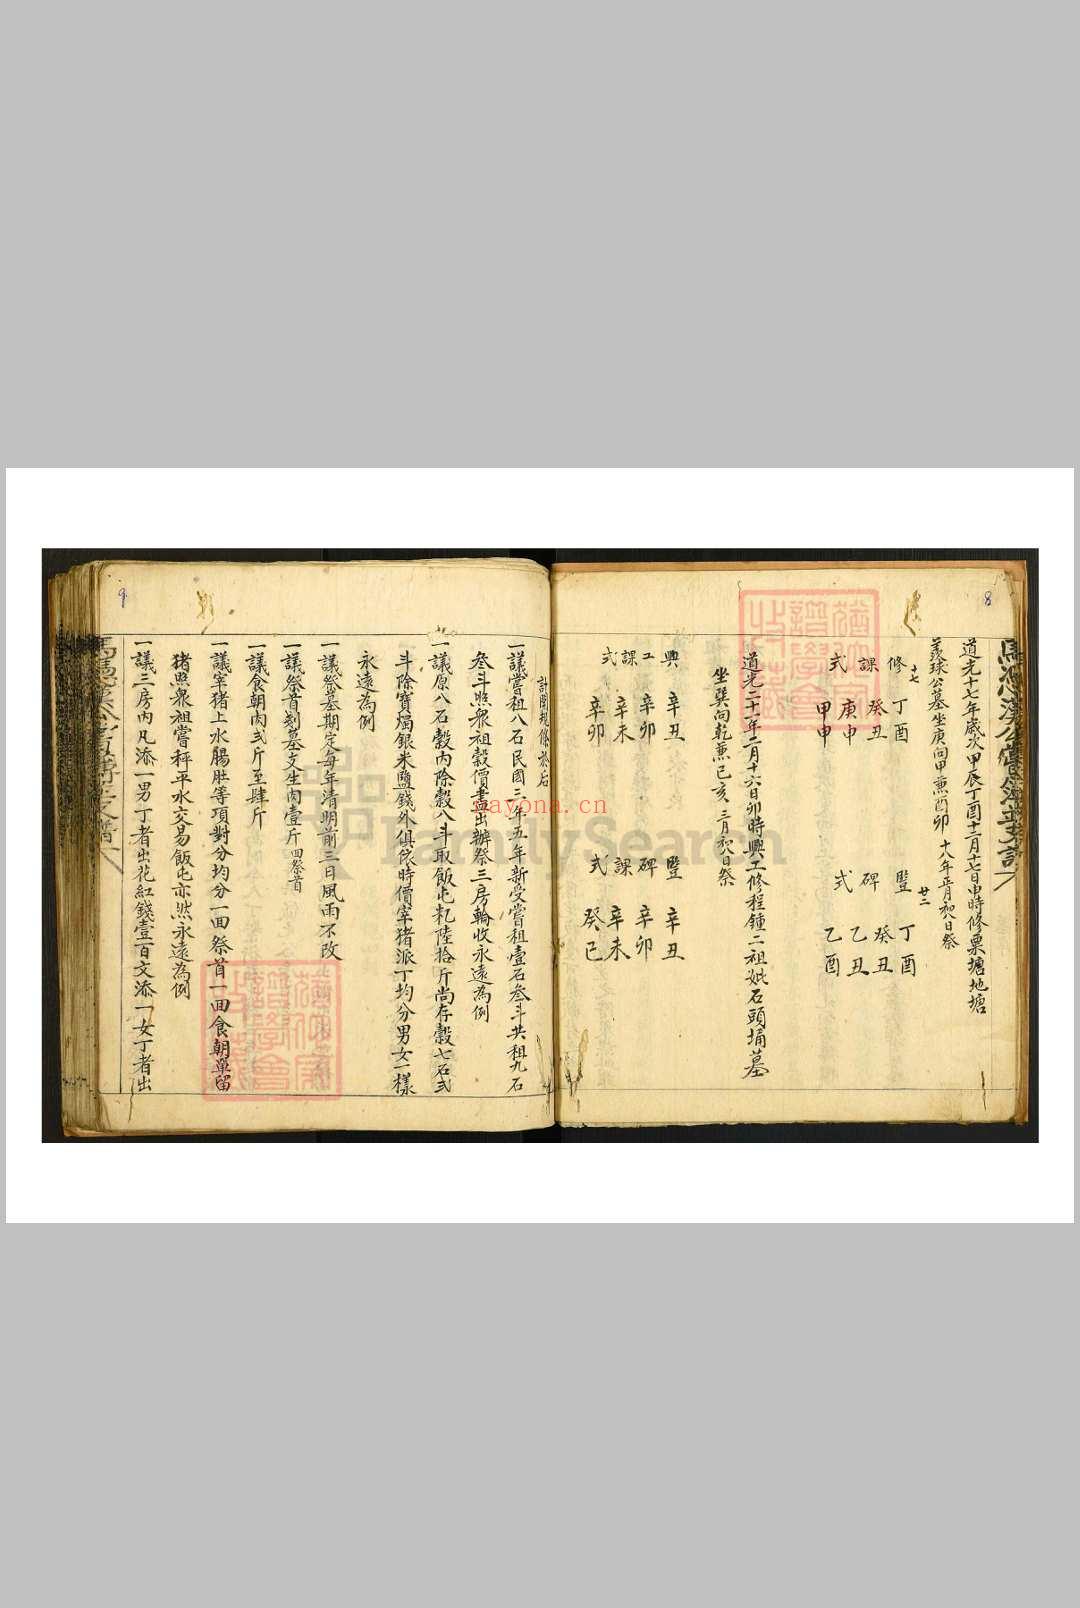 8
道光十七年歲次甲辰丁酉十二月十七日申時修粟塘地塘
義球公墓坐庚向甲兼酉卯 十八年正月初日祭
十七
廿二
修 丁酉 豎 丁酉
課 癸丑 碑 癸丑
式 庚申 式 乙丑
甲申 乙酉
道光二十一年二月十六日卯時興工修程鍾二祖妣石頭埇墓
坐巽向乾兼已亥 三月初日祭
興 辛丑 豎 辛丑
工 辛卯 碑 辛卯
課 辛未 課 辛未
式 辛卯 式 癸巳
9
計開規條於后
一議嘗租八石民國三年五年新受嘗租壹石叁斗共租九石
叁斗照衆祖穀價盡出辦祭三房輪收永遠為例
一議原八石穀內除穀八斗取飯屯籺陸拾斤尚存穀七石弍
斗除寶燭銀米鹽錢外俱依時價宰猪派丁均分男女一樣
永遠為例
一議祭墓期定每年清明前三日風雨不改
一議祭首剗墓支生肉壹斤 四祭首
一議食朝肉弍斤至肆斤
一議宰猪上水腸肚等項對分均分一面祭首一面食朝單留
猪照衆祖嘗秤平水交易飯屯亦然永遠為例
一議三房內凡添一男丁者出花紅錢壹百文添一女丁者出
FamilySearch
nayona.cn